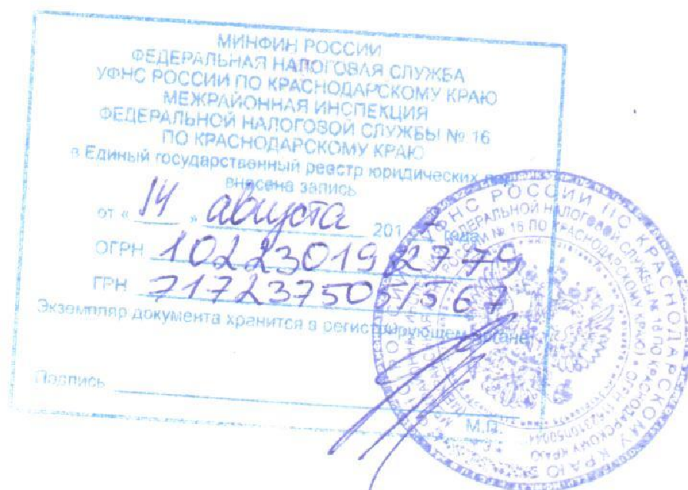 МИНФИН РОССИИ
ФЕДЕРАЛЬНАЯ НАЛОГОВАЯ СЛУЖБА
УФНС РОССИИ ПО КРАСНОДАРСКОМУ КРАЮ
МЕЖРАЙОННАЯ ИНСПЕКЦИЯ
ФЕДЕРАЛЬНОЙ НАЛОГОВОЙ СЛУЖБЫ № 16
ПО КРАСНОДАРСКОМУ КРАЮ
в Единый государственный реестр юридических
внесена запись
от « 14 » августа 2017 года
ОГРН 1022301992779
ГРН 7172375051567
Экземпляр документа хранится в регистрирующем органе
Подпись
М.П.
УФНС РОССИИ ПО КРАСНОДАРСКОМУ КРАЮ